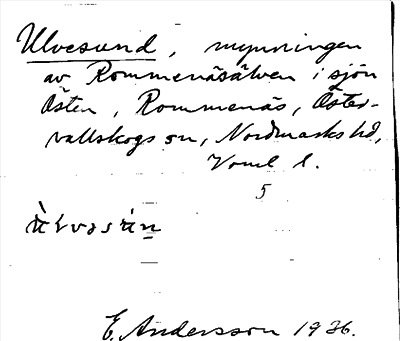 Ulvesund, mynningen
av Rommenäsälven i sjön
Östen, Rommenäs, Öster-
vallskogs sn, Nordmarks hd,
Vrml l.
5
E. Andersson 1936.